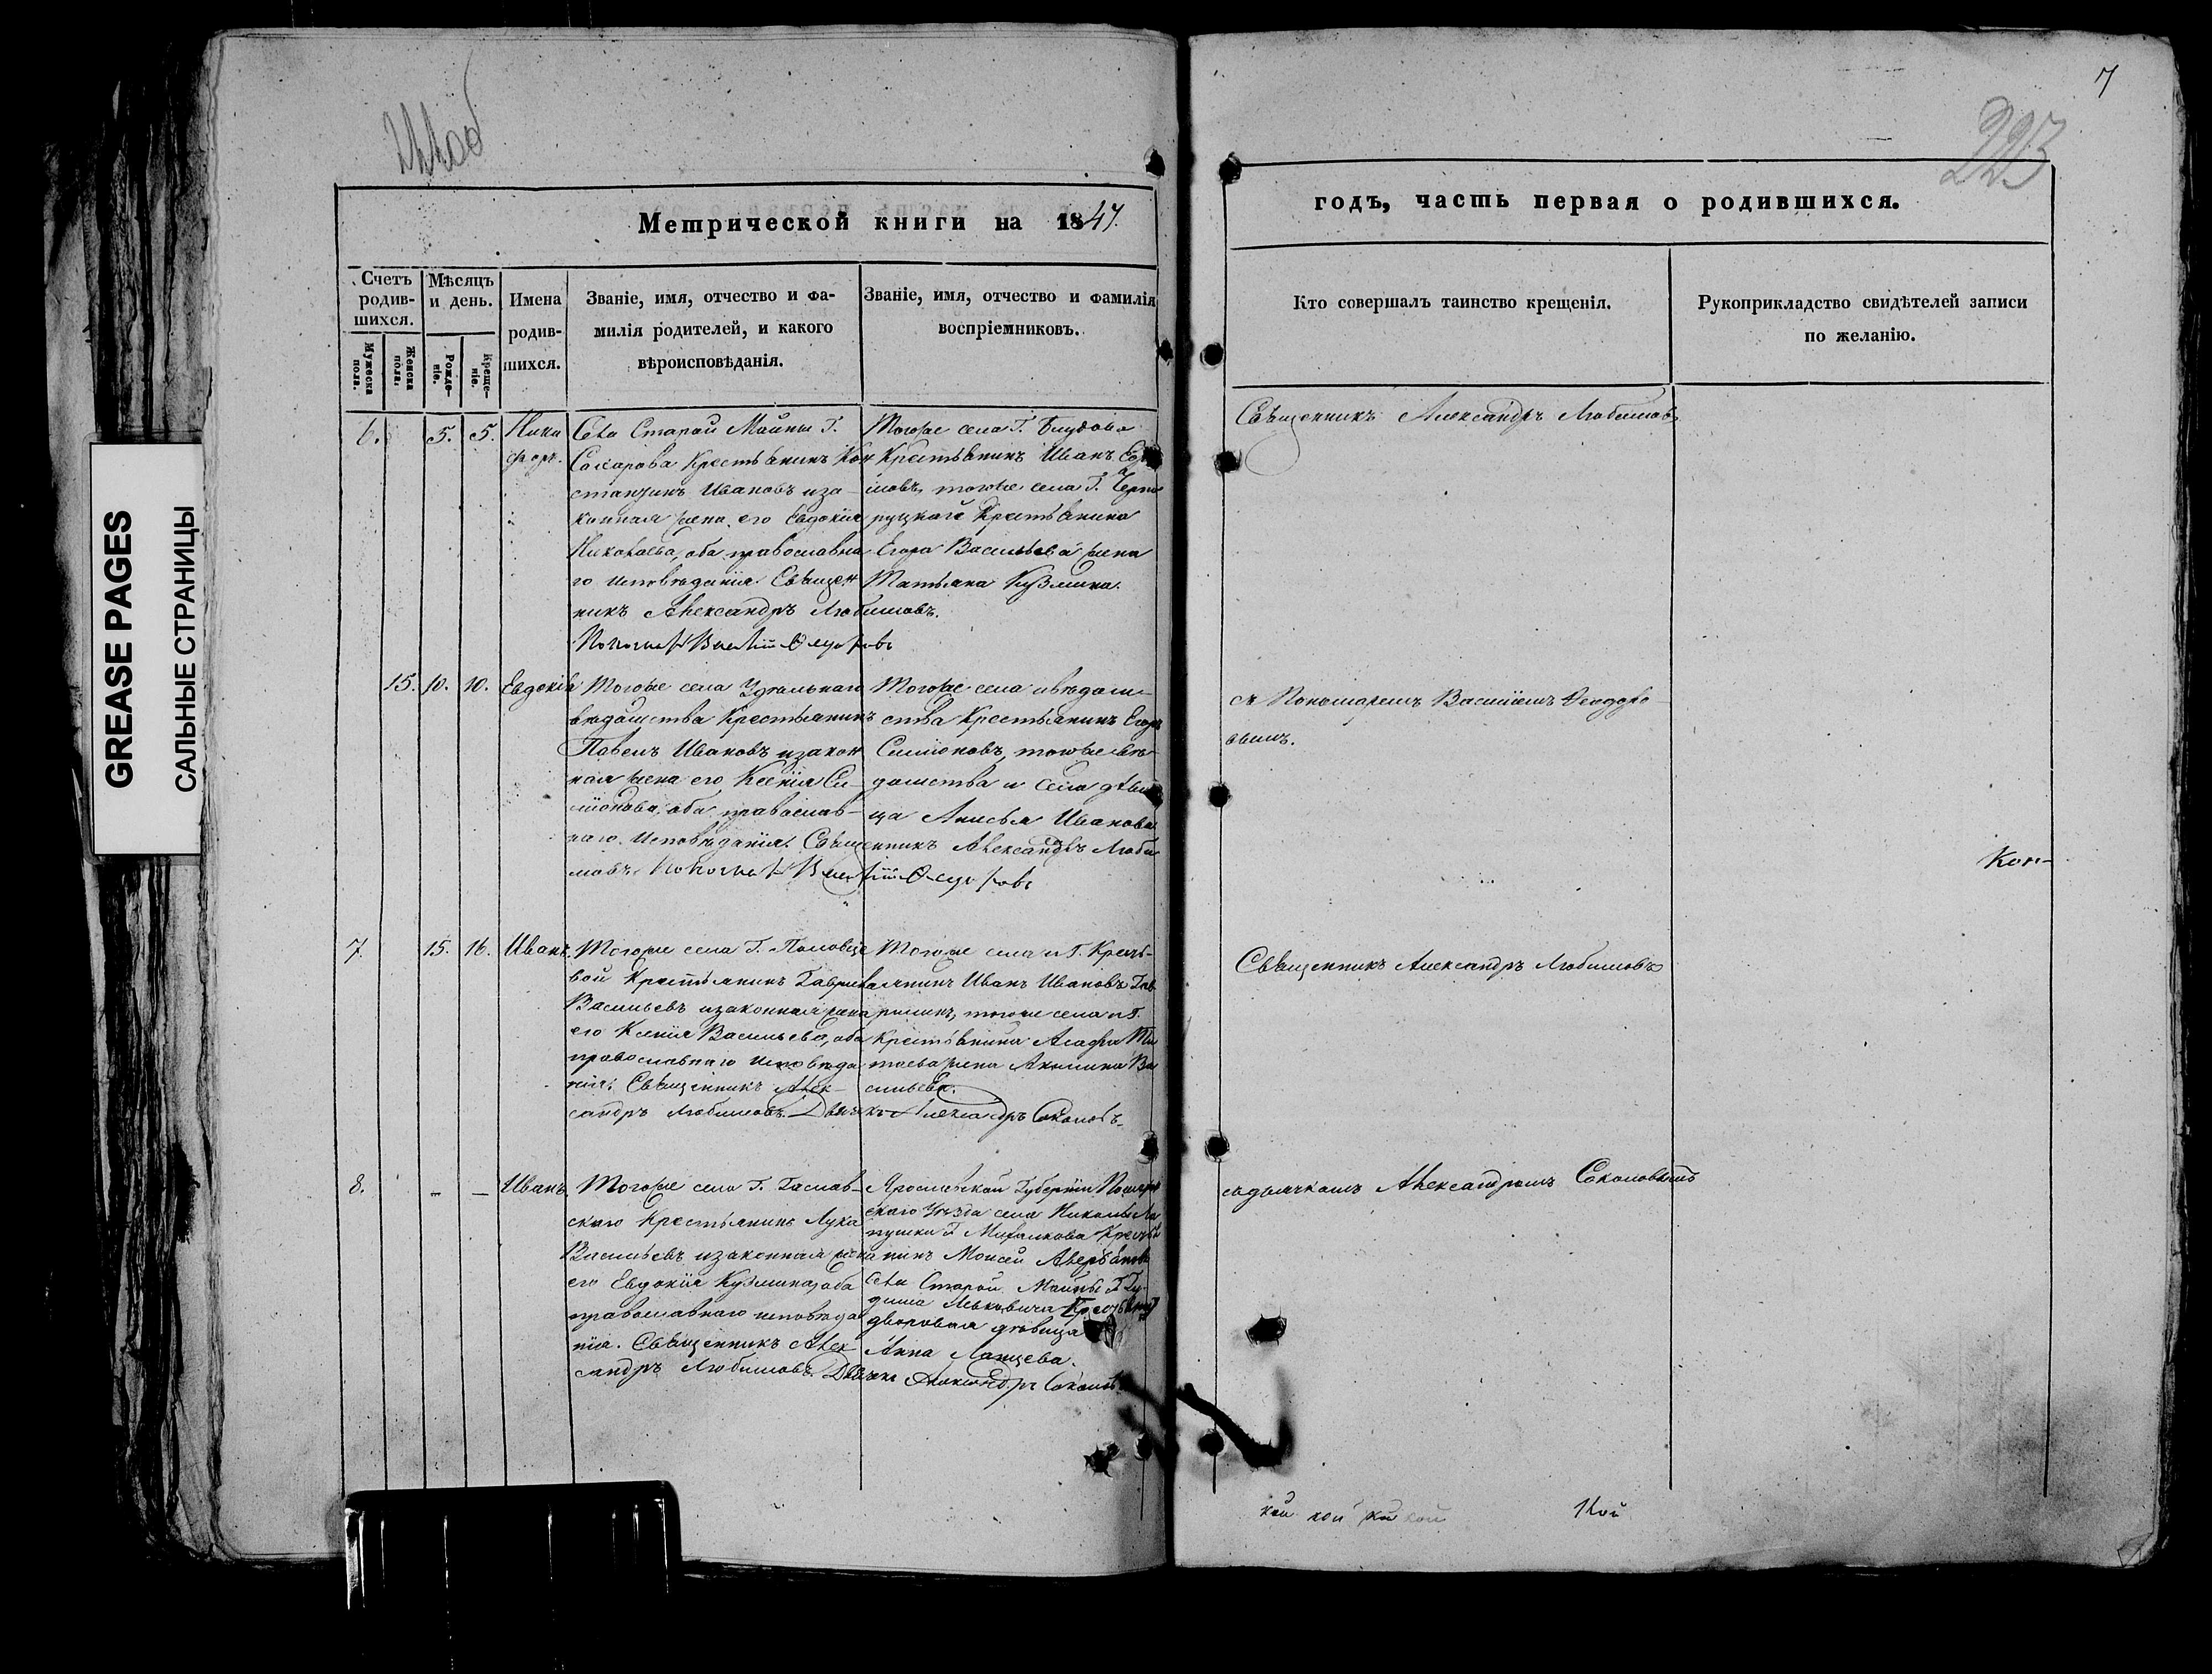 GREASE PAGES
САЛЬНЫЕ СТРАНИЦЫ
7
223
Метрической книги на 1847.
годъ, часть первая о родившихся.
Счетъ родив-
шихся.
Мѣсяцъ
и день.
Мужеска
пола.
Женска
пола.
Рожде-
ніе.
Креще-
ніе.
Имена
родив-
шихся.
Званіе, имя, отчество и фа-
милія родителей, и какого
вѣроисповѣданія.
Званіе, имя, отчество и фамилія
воспріемниковъ.
Кто совершалъ таинство крещенія.
Рукоприкладство свидѣтелей записи
по желанію.
6. 5. 5. Ники
форъ.
Села Старой Майны Г.
Крестьянинъ Кон
стантинъ Ивановъ и за-
конная жена его Евдокія
Николаева, оба православна
го исповѣданія. Священ
никъ Александръ Любимовъ.
Тогоже села Г. Блудова
Крестьянинъ Иванъ
тогоже села Г.
Крестьянина
Егора Васильева жена
Татьяна Кузмина.
Священникъ Александръ Любимовъ
15. 10. 10. Евдокія
Тогоже села Удѣльнаго
вѣдомства Крестьянинъ
Павелъ Ивановъ и закон
ная жена его Ксенія Си-
міонова, оба православ-
наго исповѣданія. Священникъ Александръ Люби
мовъ.
Тогоже села и вѣдом-
ства Крестьянинъ Егоръ
Симіоновъ, тогоже вѣ-
домства и села дѣви
ца Анисья Иванова
съ Пономаремъ Василіемъ Ѳеодоро-
вымъ.
Кон-
7. 15. 16. Иванъ.
Тогоже села Г.
вой Крестьянинъ Гаврила
Васильевъ и законная жена
его Ксенія Васильева, оба
православнаго исповѣда
нія. Священникъ Алек-
сандръ Любимовъ. Дьячекъ Александръ Соколовъ.
Тогоже села и Г. Кресть-
янинъ Иванъ Ивановъ Гав-
тогоже села и Г.
Крестьянина Агафона Ти
жена Акилина Ва
сильева.
Священникъ Александръ Любимовъ
8. - - Иванъ.
Тогоже села Г.
скаго Крестьянинъ Лука
Васильевъ и законная жена
его Евдокія Кузмина, оба
православнаго исповѣда
нія. Священникъ Алек
сандръ Любимовъ. Дьячекъ Александръ Соколовъ
Ярославской Губерніи
скаго Уѣзда села Николы
Г. Михалкова Кресть
янинъ Моисей
села Старой Майны Г.
дворовая дѣвица
Анна
съ дьячкомъ Александромъ Соколовымъ
кой кой кой кой
кой